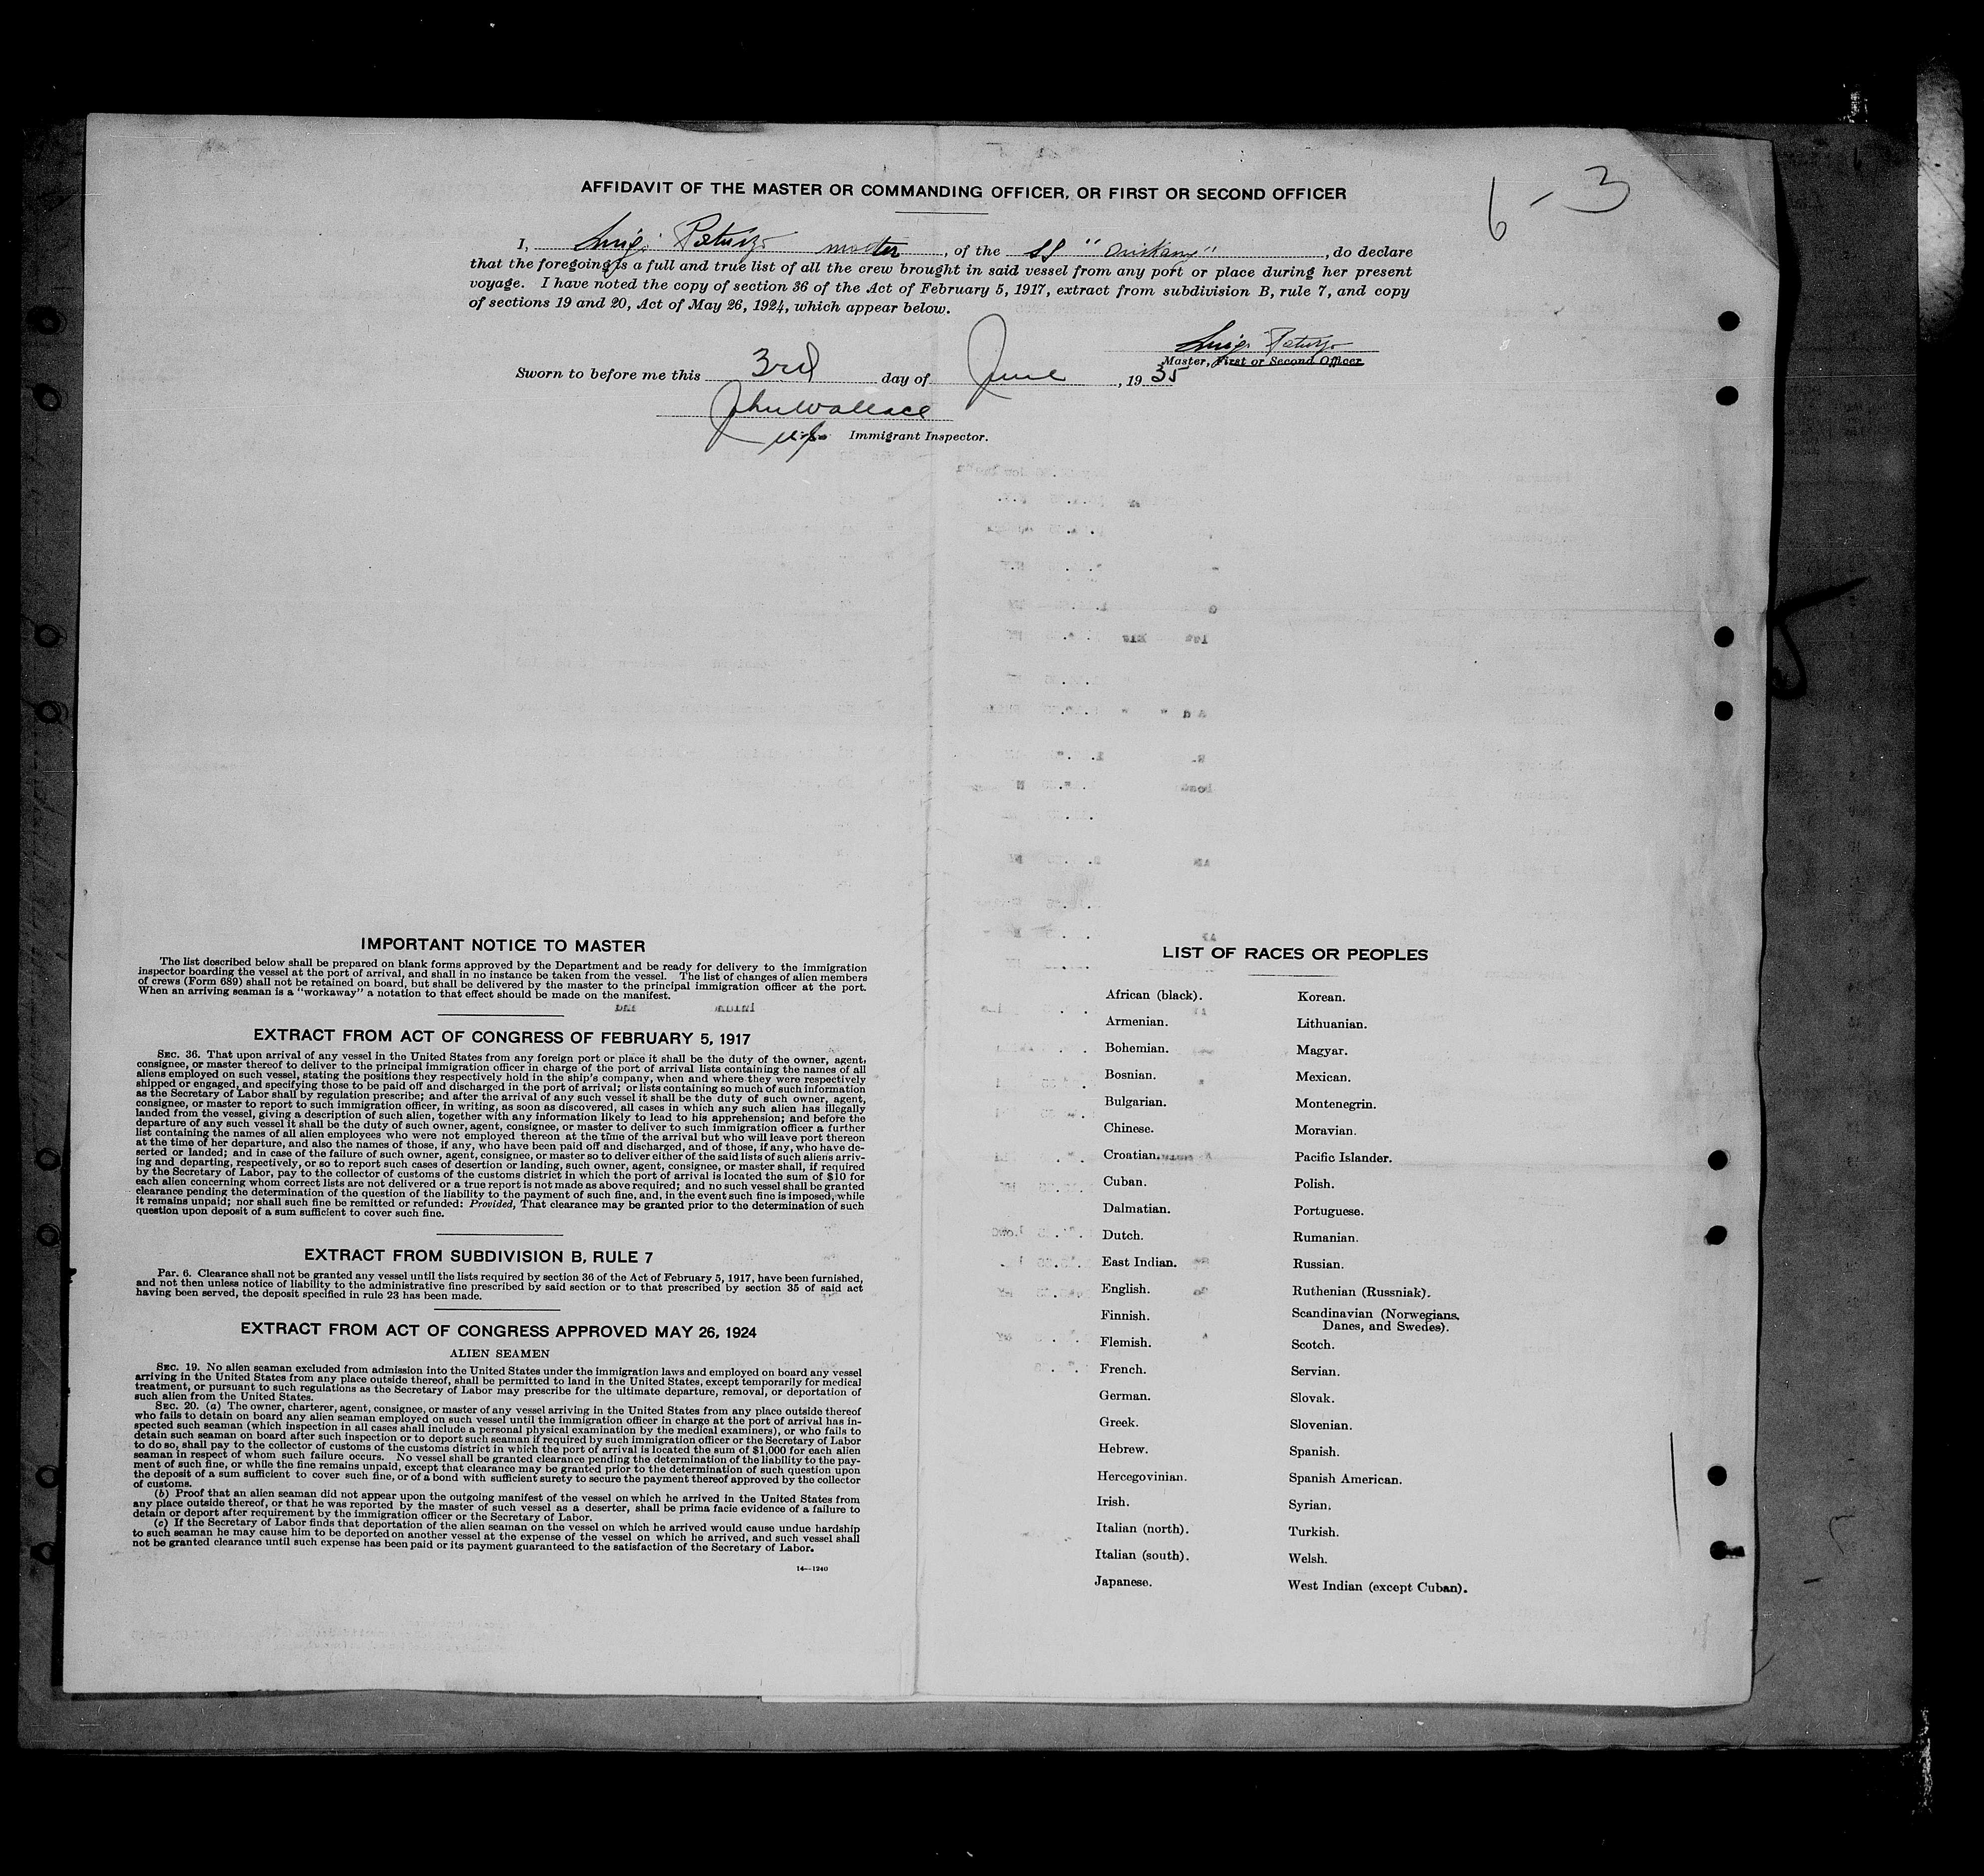 6-3
AFFIDAVIT OF THE MASTER OR COMMANDING OFFICER, OR FIRST OR SECOND OFFICER
I, Luigi master, of the SS , do declare
that the foregoing is a full and true list of all the crew brought in said vessel from any port or place during her present
voyage. I have noted the copy of section 36 of the Act of February 5, 1917, extract from subdivision B, rule 7, and copy
of sections 19 and 20, Act of May 26, 1924, which appear below.
Luigi
Master, First or Second Officer
Sworn to before me this 3rd day of June, 1935
John Wallace
Immigrant Inspector.
IMPORTANT NOTICE TO MASTER
The list described below shall be prepared on blank forms approved by the Department and be ready for delivery to the immigration
inspector boarding the vessel at the port of arrival, and shall in no instance be taken from the vessel. The list of changes of alien members
of crews (Form 689) shall not be retained on board, but shall be delivered by the master to the principal immigration officer at the port.
When an arriving seaman is a "workaway" a notation to that effect should be made on the manifest.
EXTRACT FROM ACT OF CONGRESS OF FEBRUARY 5, 1917
SEC. 36. That upon arrival of any vessel in the United States from any foreign port or place it shall be the duty of the owner, agent,
consignee, or master thereof to deliver to the principal immigration officer in charge of the port of arrival lists containing the names of all
aliens employed on such vessel, stating the positions they respectively hold in the ship's company, when and where they were respectively
shipped or engaged, and specifying those to be paid off and discharged in the port of arrival; or lists containing so much of such information
as the Secretary of Labor shall by regulation prescribe; and after the arrival of any such vessel it shall be the duty of such owner, agent,
consignee, or master to report to such immigration officer, in writing, as soon as discovered, all cases in which any such alien has illegally
landed from the vessel, giving a description of such alien, together with any information likely to lead to his apprehension; and before the
departure of any such vessel it shall be the duty of such owner, agent, consignee, or master to deliver to such immigration officer a further
list containing the names of all alien employees who were not employed thereon at the time of the arrival but who will leave port thereon
at the time of her departure, and also the names of those, if any, who have been paid off and discharged, and of those, if any, who have de-
serted or landed; and in case of the failure of such owner, agent, consignee, or master so to deliver either of the said lists of such aliens arriv-
ing and departing, respectively, or so to report such cases of desertion or landing, such owner, agent, consignee, or master shall, if required
by the Secretary of Labor, pay to the collector of customs of the customs district in which the port of arrival is located the sum of $10 for
each alien concerning whom correct lists are not delivered or a true report is not made as above required; and no such vessel shall be granted
clearance pending the determination of the question of the liability to the payment of such fine, and, in the event such fine is imposed, while
it remains unpaid; nor shall such fine be remitted or refunded: Provided, That clearance may be granted prior to the determination of such
question upon deposit of a sum sufficient to cover such fine.
EXTRACT FROM SUBDIVISION B, RULE 7
Par. 6. Clearance shall not be granted any vessel until the lists required by section 36 of the Act of February 5, 1917, have been furnished,
and not then unless notice of liability to the administrative fine prescribed by said section or to that prescribed by section 35 of said act
having been served, the deposit specified in rule 23 has been made.
EXTRACT FROM ACT OF CONGRESS APPROVED MAY 26, 1924
ALIEN SEAMEN
SEC. 19. No alien seaman excluded from admission into the United States under the immigration laws and employed on board any vessel
arriving in the United States from any place outside thereof, shall be permitted to land in the United States, except temporarily for medical
treatment, or pursuant to such regulations as the Secretary of Labor may prescribe for the ultimate departure, removal, or deportation of
such alien from the United States.
SEC. 20. (a) The owner, charterer, agent, consignee, or master of any vessel arriving in the United States from any place outside thereof
who fails to detain on board any alien seaman employed on such vessel until the immigration officer in charge at the port of arrival has in-
spected such seaman (which inspection in all cases shall include a personal physical examination by the medical examiners), or who fails to
detain such seaman on board after such inspection or to deport such seaman if required by such immigration officer or the Secretary of Labor
to do so, shall pay to the collector of customs of the customs district in which the port of arrival is located the sum of $1,000 for each alien
seaman in respect of whom such failure occurs. No vessel shall be granted clearance pending the determination of the liability to the pay-
ment of such fine, or while the fine remains unpaid, except that clearance may be granted prior to the determination of such question upon
the deposit of a sum sufficient to cover such fine, or of a bond with sufficient surety to secure the payment thereof approved by the collector
of customs.
(b) Proof that an alien seaman did not appear upon the outgoing manifest of the vessel on which he arrived in the United States from
any place outside thereof, or that he was reported by the master of such vessel as a deserter, shall be prima facie evidence of a failure to
detain or deport after requirement by the immigration officer or the Secretary of Labor.
(c) If the Secretary of Labor finds that deportation of the alien seaman on the vessel on which he arrived would cause undue hardship
to such seaman he may cause him to be deported on another vessel at the expense of the vessel on which he arrived, and such vessel shall
not be granted clearance until such expense has been paid or its payment guaranteed to the satisfaction of the Secretary of Labor.
14—1240
LIST OF RACES OR PEOPLES
African (black).
Armenian.
Bohemian.
Bosnian.
Bulgarian.
Chinese.
Croatian.
Cuban.
Dalmatian.
Dutch.
East Indian.
English.
Finnish.
Flemish.
French.
German.
Greek.
Hebrew.
Hercegovinian.
Irish.
Italian (north).
Italian (south).
Japanese.
Korean.
Lithuanian.
Magyar.
Mexican.
Montenegrin.
Moravian.
Pacific Islander.
Polish.
Portuguese.
Rumanian.
Russian.
Ruthenian (Russniak).
Scandinavian (Norwegians,
Danes, and Swedes).
Scotch.
Servian.
Slovak.
Slovenian.
Spanish.
Spanish American.
Syrian.
Turkish.
Welsh.
West Indian (except Cuban).